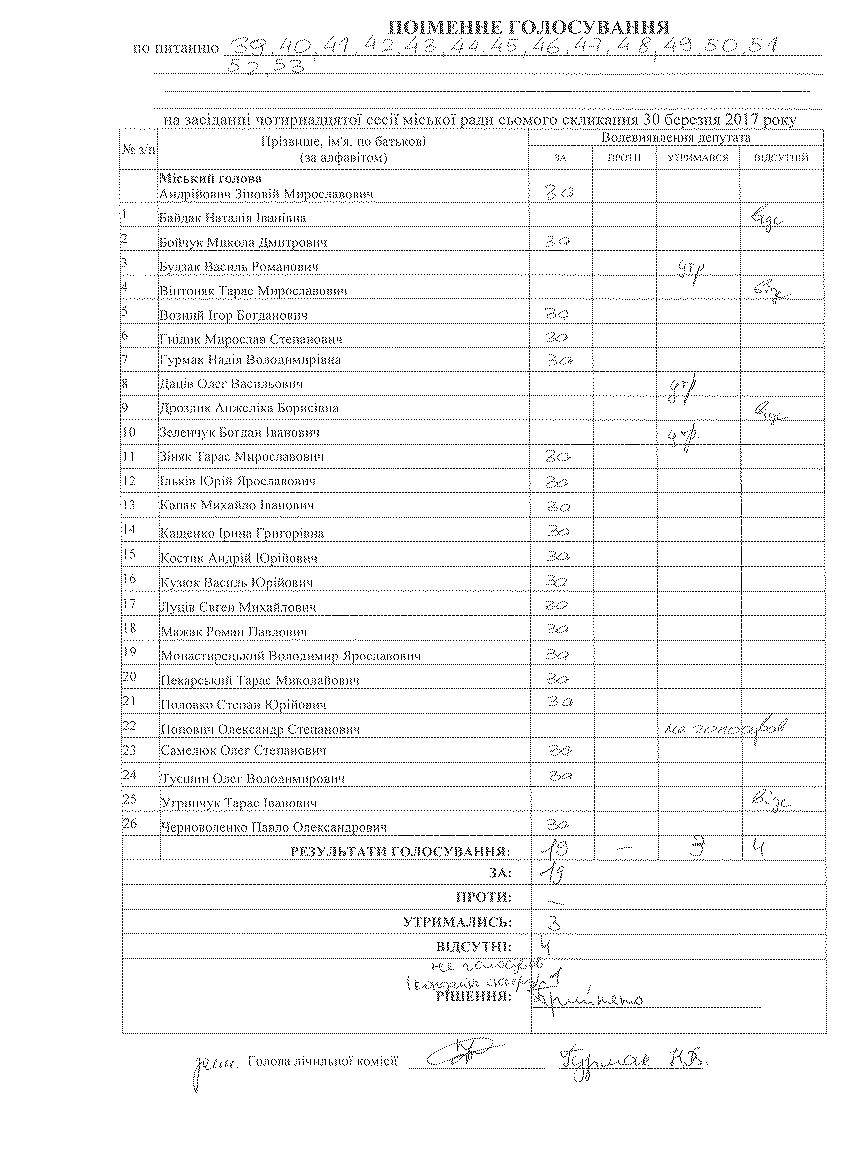 ПОІМЕННЕ ГОЛОСУВАННЯ
по питанню 39, 40, 41, 42, 43, 44, 45, 46, 47, 48, 49, 50, 51
52, 53
на засіданні чотирнадцятої сесії міської ради сьомого скликання 30 березня 2017 року
№ з/п Прізвище, ім'я, по батькові (за алфавітом) Волевиявлення депутата
ЗА ПРОТИ УТРИМАВСЯ ВІДСУТНІЙ
Міський голова
Андрійович Зіновій Мирославович за
1 Байдак Наталія Іванівна відс
2 Бойчук Микола Дмитрович за
3 Будзак Василь Романович утр
4 Вінтоняк Тарас Мирославович відс
5 Возний Ігор Богданович за
6 Гнідик Мирослав Степанович за
7 Гурмак Надія Володимирівна за
8 Даців Олег Васильович утр
9 Дроздик Анжеліка Борисівна відс
10 Зеленчук Богдан Іванович утр.
11 Зіняк Тарас Мирославович за
12 Ільків Юрій Ярославович за
13 Капак Михайло Іванович за
14 Кащенко Ірина Григорівна за
15 Костик Андрій Юрійович за
16 Кузюк Василь Юрійович за
17 Луців Євген Михайлович за
18 Мажак Роман Павлович за
19 Монастирецький Володимир Ярославович за
20 Пекарський Тарас Миколайович за
21 Половко Степан Юрійович за
22 Попович Олександр Степанович не голосував
23 Самелюк Олег Степанович за
24 Туспин Олег Володимирович за
25 Угринчук Тарас Іванович відс
26 Черноволенко Павло Олександрович за
РЕЗУЛЬТАТИ ГОЛОСУВАННЯ: 19 – 3 4
ЗА: 19
ПРОТИ: –
УТРИМАЛИСЬ: 3
ВІДСУТНІ: 4
не голосув
1
РІШЕННЯ: Прийнято
Голова лічильної комісії Гурмак Н.В.